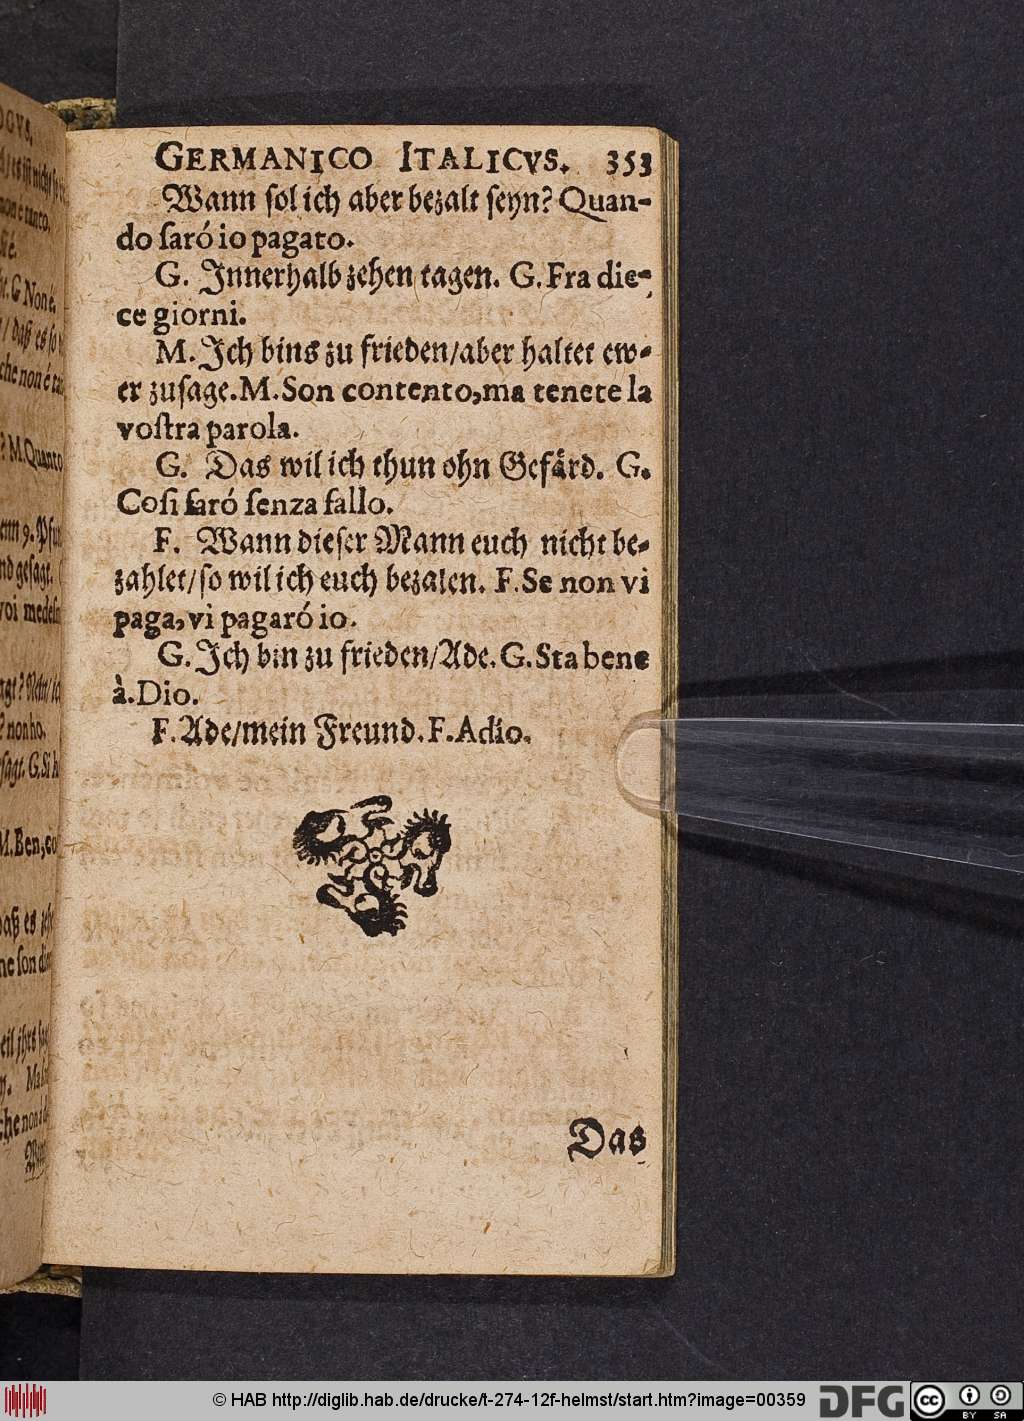 GERMANICO ITALICVS. 353
Wann sol ich aber bezalt seyn? Quan-
do saró io pagato.
G. Innerhalb zehen tagen. G. Fra die-
ce giorni.
M. Ich bins zu frieden/aber haltet ew-
er zusage. M. Son contento, ma tenete la
vostra parola.
G. Das wil ich thun ohn Gefärd. G.
Cosi faró senza fallo.
F. Wann dieser Mann euch nicht be-
zahlet/so wil ich euch bezalen. F. Se non vi
paga, vi pagaró io.
G. Ich bin zu frieden/Ade. G. Sta bene
à. Dio.
F. Ade/mein Freund. F. Adio.
Das
© HAB http://diglib.hab.de/drucke/t-274-12f-helmst/start.htm?image=00359
DFG
cc BY SA